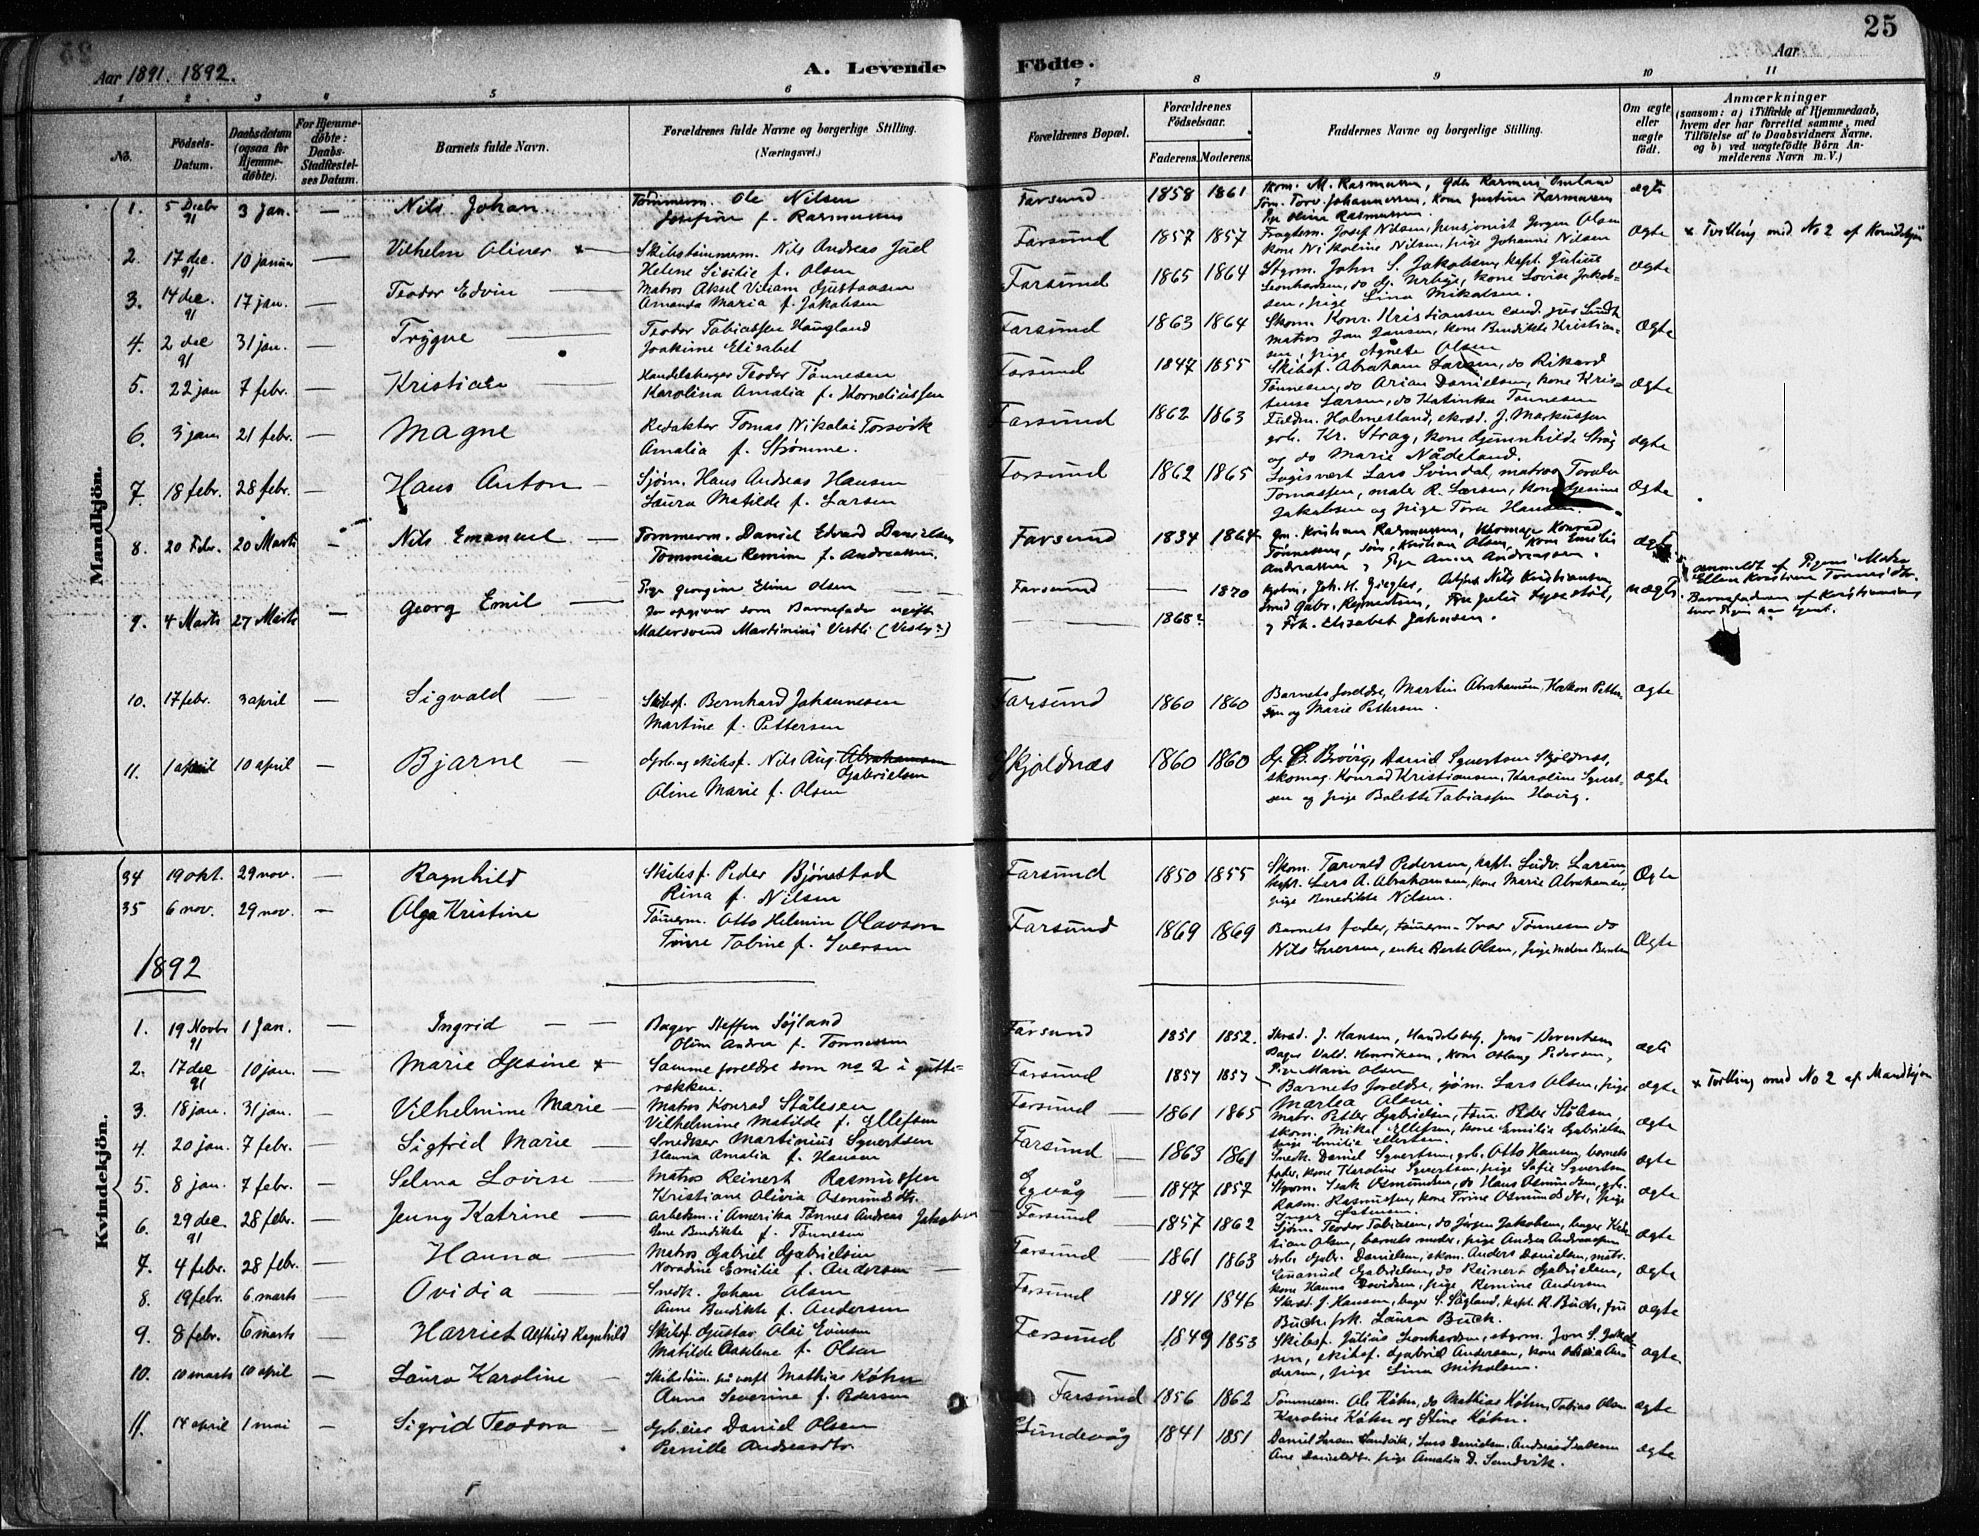 25
Aar 1891. 1892.
A. Levende Födte.
Aar
1 2 3 4 5 6 7 8 9 10 11
No.
Födsels-Datum.
Daabsdatum (ogsaa for Hjemmedøbte).
For Hjemmedøbte: Daabs-Stadfæstelses Datum.
Barnets fulde Navn.
Forældrenes fulde Navne og borgerlige Stilling.
(Næringsvei.)
Forældrenes Bopæl.
Forældrenes Födselsaar.
Faderens. Moderens.
Faddernes Navne og borgerlige Stilling.
Om ægte eller uægte født.
Anmærkninger
(saasom: a) i Tilfælde af Hjemmedaab, hvem der har forrettet samme, med Tilföielse af to Daabsvidners Navne, og b) ved uægtefödte Börn Anmelderens Navn m.V.)
Mandkjön.
1. 5 Decbr 91 3 Jan. — Nils Johan Tømmerm. Ole Nilsen Josefine f. Rasmussen Farsund 1858 1861 ægte
2. 17 dec. 91 10 januar — Vilhelm Oliver × — Skibstømmerm. Nils Andreas Juel Helene Sisilie f. Olsen Farsund 1857 1857 Josef Nilsen, pensjonist Jørgen Olsen kone Nikoline Nilsen, pige Johanne Nilsen ægte × Tvilling med No 2 af Kvindekjøn
3. 14 dec. 91 17 jan. — Teodor Edvin — Matros Aksel Viliam Gustavsen Amanda Maria f. Jakobsen Farsund 1865 1864 Styrm. John S. Jakobsen, kapt. Julius Leonhardsen, kone Lovise Jakobsen, pige Lina Mikalsen. ægte
4. 2 dec 91 31 jan. — Trygve — Teodor Tobiassen Haugland Joakime Elisabet Farsund 1863 1864 Skom. Konr. Kristiansen cand. jur Lundt matros Jan Jansen, kone Bendikte Kristiansen, pige Agnete Olsen ægte
5. 22 jan 7 febr. — Kristian — Handelsborger Teodor Tønnesen Karolina Amalia f. Korneliussen Farsund 1847 1855 Skibsf. Abraham Larsen, do Rikard Tønnesen, do Arian Danielsen, kone Kristense Larsen, do Katinka Tønnesen ægte
6. 3 jan 21 febr. — Magne Redaktør Tomas Nikolai Torsvik Amalia f. Strømme. Farsund 1862 1863 Fuldm. Holmesland, skræd. J. Markussen grb. Kr. Stray, kone Gunnhilde Stray og do Marie Nådeland. ægte
7. 18 febr. 28 febr. — Hans Anton — Sjøm. Hans Andreas Hansen Laura Matilde f. Larsen Farsund 1862 1865 Logisvert Lars Svindal, matros Toralv Tomassen, maler R. Larsen, kone Gesine Jakobsen og pige Tora Hansen. ægte
8. 20 Febr. 20 Marts — Nils Emanuel — Tømmerm. Daniel Edvard Danielsen Tommine Remine f. Andreassen Farsund 1834 1864 Kristian Rasmussen, Konrad Tønnessen, Kristian Olsen, Kone Emilie Andreassen, Pige Anne Andreassen. ægte
9. 4 Marts 27 Marts — Georg Emil — Pige Georgine Eline Olsen for opgiver som Barnefader ugift Malersvend Martinius Vestli (Vestby?) Farsund — 1870 1868? Frk. Elisabet Jahnsen. uægte anmeldt af Pigens Moder Ellen Kristine Tønnesdtr.
10. 17 febr. 3 april — Sigvald — Skibsf. Bernhard Johannesen Martine f. Pettersen Farsund 1860 1860 Barnets foreldre, Martin Abrahamsen, Haakon Pettersen og Marie Pettersen. ægte
11. 1 april 10 april — Bjarne — Grb. og skibsf. Nils Aug. Abrahamsen Gabrielsen Oline Marie f. Olsen Skjoldnæs 1860 1860 Syvertsen Skjoldnæs, skomag. Konrad Kristiansen, Karoline Syvertsen og pige Bolette Tobiassen Havig. ægte
Kvindekjön.
34 19 okt. 29 nov. — Ragnhild Skibsf. Peder Bjønestad Rina f. Nilsen Farsund 1850 1855 Skom. Torvald Pedersen, kapt. Ludv. Larsen, kapt. Lars A. Abrahamsen, kone Marie Abrahamsen pige Benedikte Nilsen. Ægte
35 6 nov. 29 nov. — Olga Kristine Tømerm. Otto Helmin Olavson Trine Tobine f. Iversen Farsund 1869 1869 Barnets fader, tømerm. Ivar Tønnesen do Nils Iversen, enke Berte Olsen, pige Ægte
1892
1. 19 Novbr 91 1 Jan. — Ingrid — — Bager Steffen Søjland Oline Andrea f. Tønnessen Farsund 1851 1852. Skræd. J. Hansen, Handelsbetj. Jens Bager Vald. Henriksen, Kone Aslaug Pedersen, Pige Marie Olsen ægte
2. 17 dec 91 10 jan. — Marie Gesine × Samme foreldre som no 2 i gutterækken. Farsund 1857 1857 Barnets foreldre, sjøm. Lars Olsen, pige Martea Olsen. ægte × Tvilling med No 2 af Mandkjøn
3. 18 jan. 31 jan. — Vilhelmine Marie — Matros Konrad Stålesen Vilhelmine Matilde f. Ellefsen Farsund — 1861 1865 Matr. Petter Gabrielsen, tøm. Peder Stålsen, skom. Mikal Ellefsen, kone Emilie Gabrielsen pige Emilie Ellefsen. ægte
4. 20 jan. 7 febr. — Sigfrid Marie — Snedker Martinius Syvertsen Hanna Amalia f. Hansen Farsund — 1863 1861 Snedk. Daniel Syvertsen, grb. Otto Hansen, barnets fader, kone Karoline Syvertsen, pige Sofie Syvertsen ægte
5. 8 jan. 7 febr. — Selma Lovise — Matros Reinert Rasmussen Kristiane Olivia Osmundsdtr. Egvåg 1847 1857 Styrm. Isak Osmundsen, do Hans Osmundsen, grb. Rasm. Rasmussen, kone Trine Osmundsdtr, pige Inger ægte
6. 29 dec 91 28 febr. — Jenny Katrine — Arbeidsm. i Amerika Tønnes Andreas Jakobsen Gene Bendikte f. Tønnesen Farsund — 1857 1862 Sjøm. Teodor Tobiasen, do Jørgen Jakobsen, bager Kristian Olsen, barnets moder, pige Andrea Andreassen ægte
7. 4 febr. 28 febr. — Hanna — Matros Gabriel Gabrielsen Noradine Emilie f. Andersen — Farsund 1861 1863 Grb. Gabr. Danielsen, skom. Anders Danielsen, matr. Emanuel Gabrielsen, do Reinert Gabrielsen, kone Hanna Davidsen, pige Remine Andersen ægte
8. 19 febr. 6 marts — Ovidia — Snedk. Johan Olsen Anne Bendikte f. Andersen Farsund 1841 1846 Skræd. J. Hansen, bager S. Søgland, kapt. R. Buch, fru Buch, frk. Laura Buch. ægte
9. 8 febr. 6 marts — Harriet Alfhild Ragnhild Skibsf. Gustav Olai Evensen Matilde Aaselene f. Olsen Farsund 1849 1853 Skibsf. Julius Leonhardsen, styrm. Jon S. Jakobsen, skibsf. Gabriel Andersen, kone Olivia Andersen, pige Lina Mikalsen. ægte
10. 10 marts 10 april — Laura Karoline — Skibstøm. på verft Mathias Køhn Anna Severine f. Pedersen Farsund 1856 1862 Tømmerm. Ole Køhn, do Mathias Køhn, Tobias Olsen Karoline Køhn og Stine Køhn. ægte
11. 14 april 1 mai — Sigrid Teodora — Grb.eier Daniel Olsen Pernille Andreasdtr. Sundevåg 1841 1851 Daniel Sandvik, Lars Danielsen, Andreas Isaksen Ane Danielsdtr. pige Amalia D. Sandvik. ægte